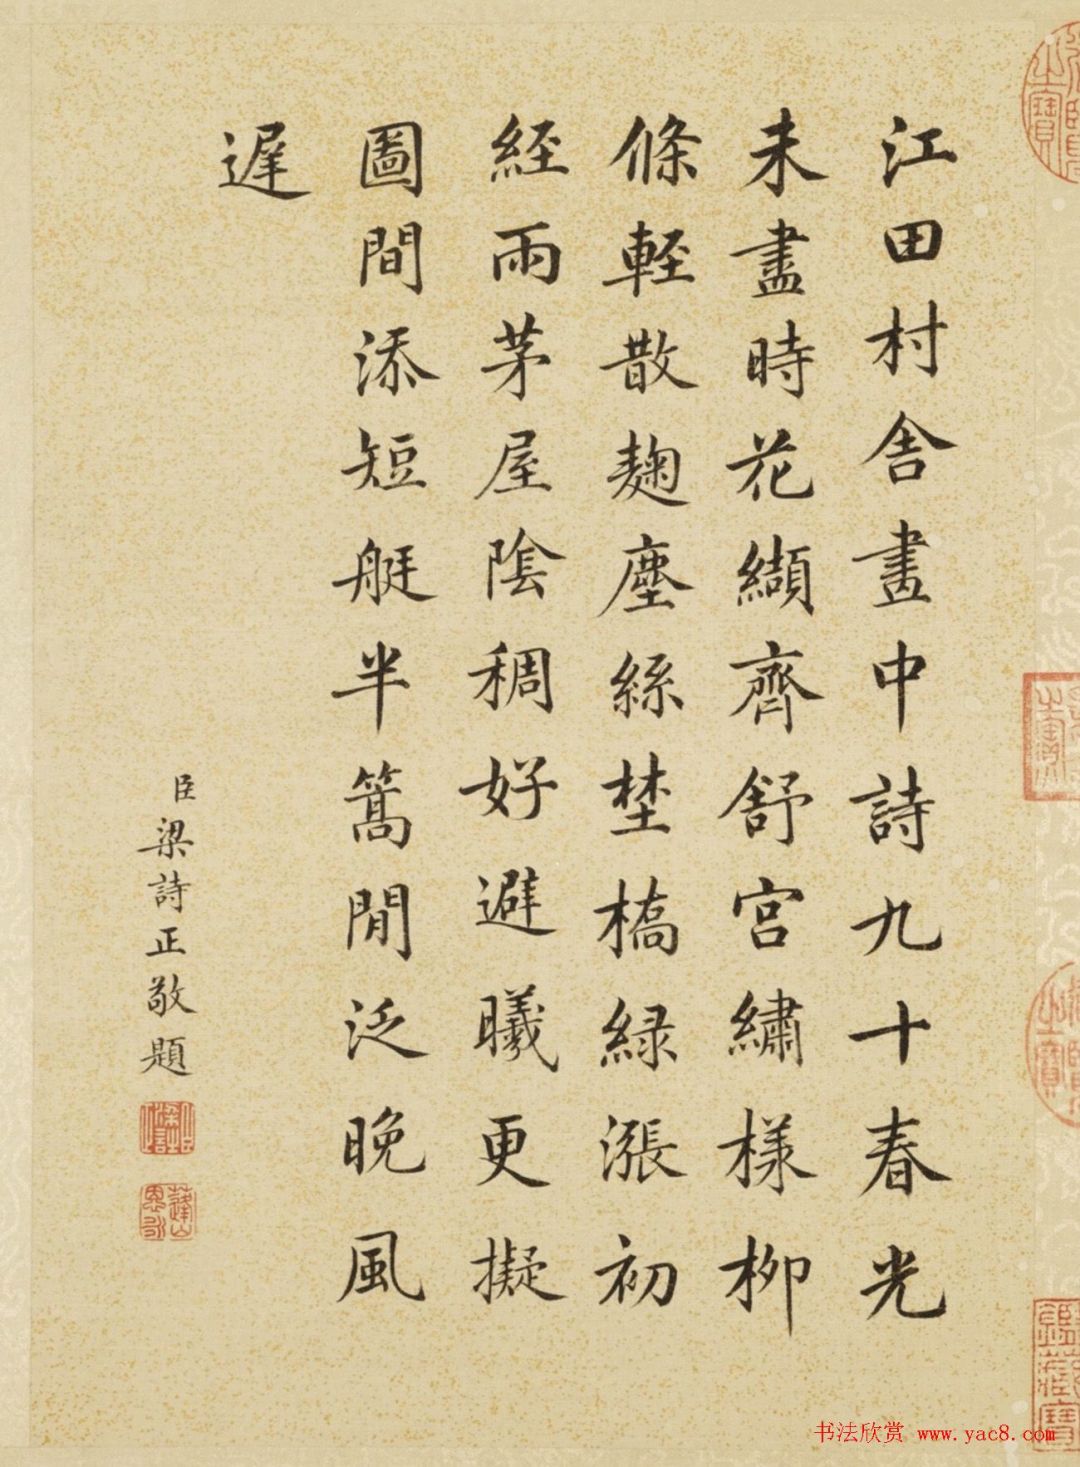 江田村舍畫中詩九十春光
未盡時花纈齊舒宮繡樣柳
條輕散麴塵絲埜橋綠漲初
経雨茅屋陰稠好避曦更擬
圖間添短艇半篙閒泛晚風
遲
臣梁詩正敬題
书法欣赏 www.yac8.com